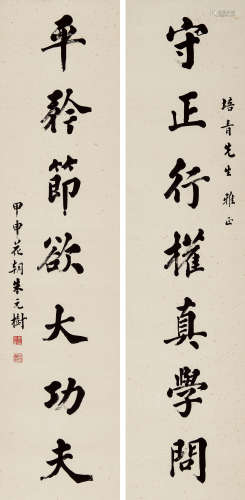 培青先生 雅正
守正行權真學問
平矜節欲大功夫
甲申花朝朱元樹